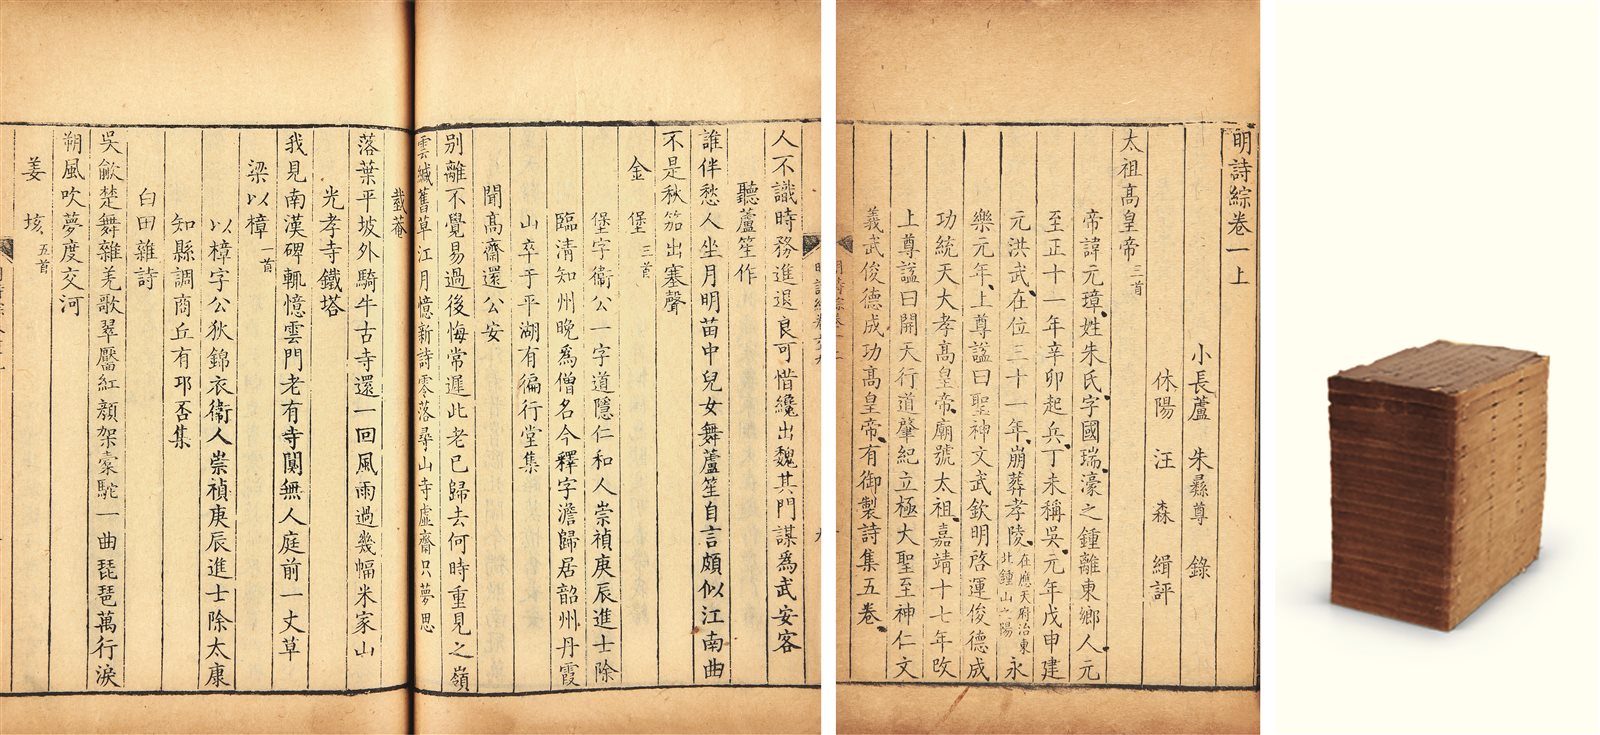 明詩綜卷一上
小長蘆 朱彝尊 錄
休陽 汪森 緝評
太祖高皇帝 三首
帝諱元璋姓朱氏字國瑞濠之鍾離東鄉人元
至正十一年辛卯起兵丁未稱吳元年戊申建
元洪武在位三十一年崩葬孝陵 在應天府治東北鍾山之陽 永
樂元年上尊諡曰聖神文武欽明啓運俊德成
功統天大孝高皇帝廟號太祖嘉靖十七年改
上尊諡曰開天行道肇紀立極大聖至神仁文
義武俊德成功高皇帝有御製詩集五卷
人不識時務進退良可惜纔出魏其門謀為武安客
聽蘆笙作
誰伴愁人坐月明苗中兒女舞蘆笙自言頗似江南曲
不是秋笳出塞聲
金堡 三首
堡字衞公一字道隱仁和人崇禎庚辰進士除
臨清知州晚爲僧名今釋字澹歸居韶州丹霞
山卒于平湖有徧行堂集
聞高齋還公安
別離不覺易過後悔常遲此老已歸去何時重見之嶺
雲緘舊草江月憶新詩零落尋山寺虛齋只夢思
戴菴
落葉平坡外騎牛古寺還一回風雨過幾幅米家山
光孝寺鐵塔
我見南漢碑輒憶雲門老有寺闃無人庭前一丈草
梁以樟 一首
以樟字公狄錦衣衞人崇禎庚辰進士除太康
知縣調商丘有卭否集
白田雜詩
吳歈楚舞雜羌歌翠靨紅顏架橐駝一曲琵琶萬行淚
朔風吹夢度交河
姜垓 五首